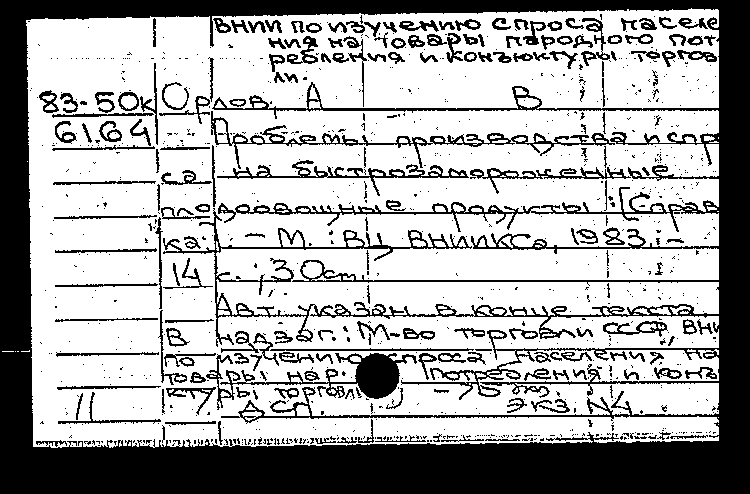 ВНИИ по изучению спроса населе
ния на товары народного пот-
ребления и конъюктуры торгов
ли.
83-50к Орлов, А В
61.64 Проблемы производства и спро
са на быстрозамороженные
плодоовощные продукты : [Справ
ка]. - М. : ВЦ ВНИИКСа, 1983. -
14 с. ; 30 см.
Авт. указан в конце текста.
В надзаг.: М-во торговли СССР, ВНИ
по изучению спроса населения на
товары нар. потребления и конъ
ктуры торговли - 75 экз.
11 ДСП. экз. N4.